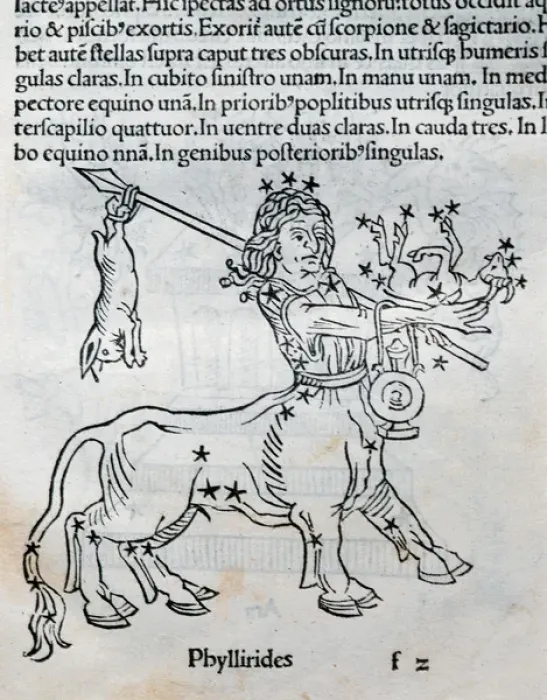 lacteꝰ appellat. Hic spectas ad ortus signoru: totus occidit aq
rio & piscibꝰ exortis. Exorit᷑ aute cū scorpione & sagictario. H
bet autē stellas supra caput tres obscuras. In utrisqꝫ humeris s
gulas claras. In cubito sinistro unam. In manu unam. In med
pectore equino unā. In prioribꝰ poplitibus utrisqꝫ singulas. I
terscapilio quattuor. In uentre duas claras. In cauda tres. In l
bo equino nnā. In genibus posterioribꝰ singulas.
Phyllirides
f z